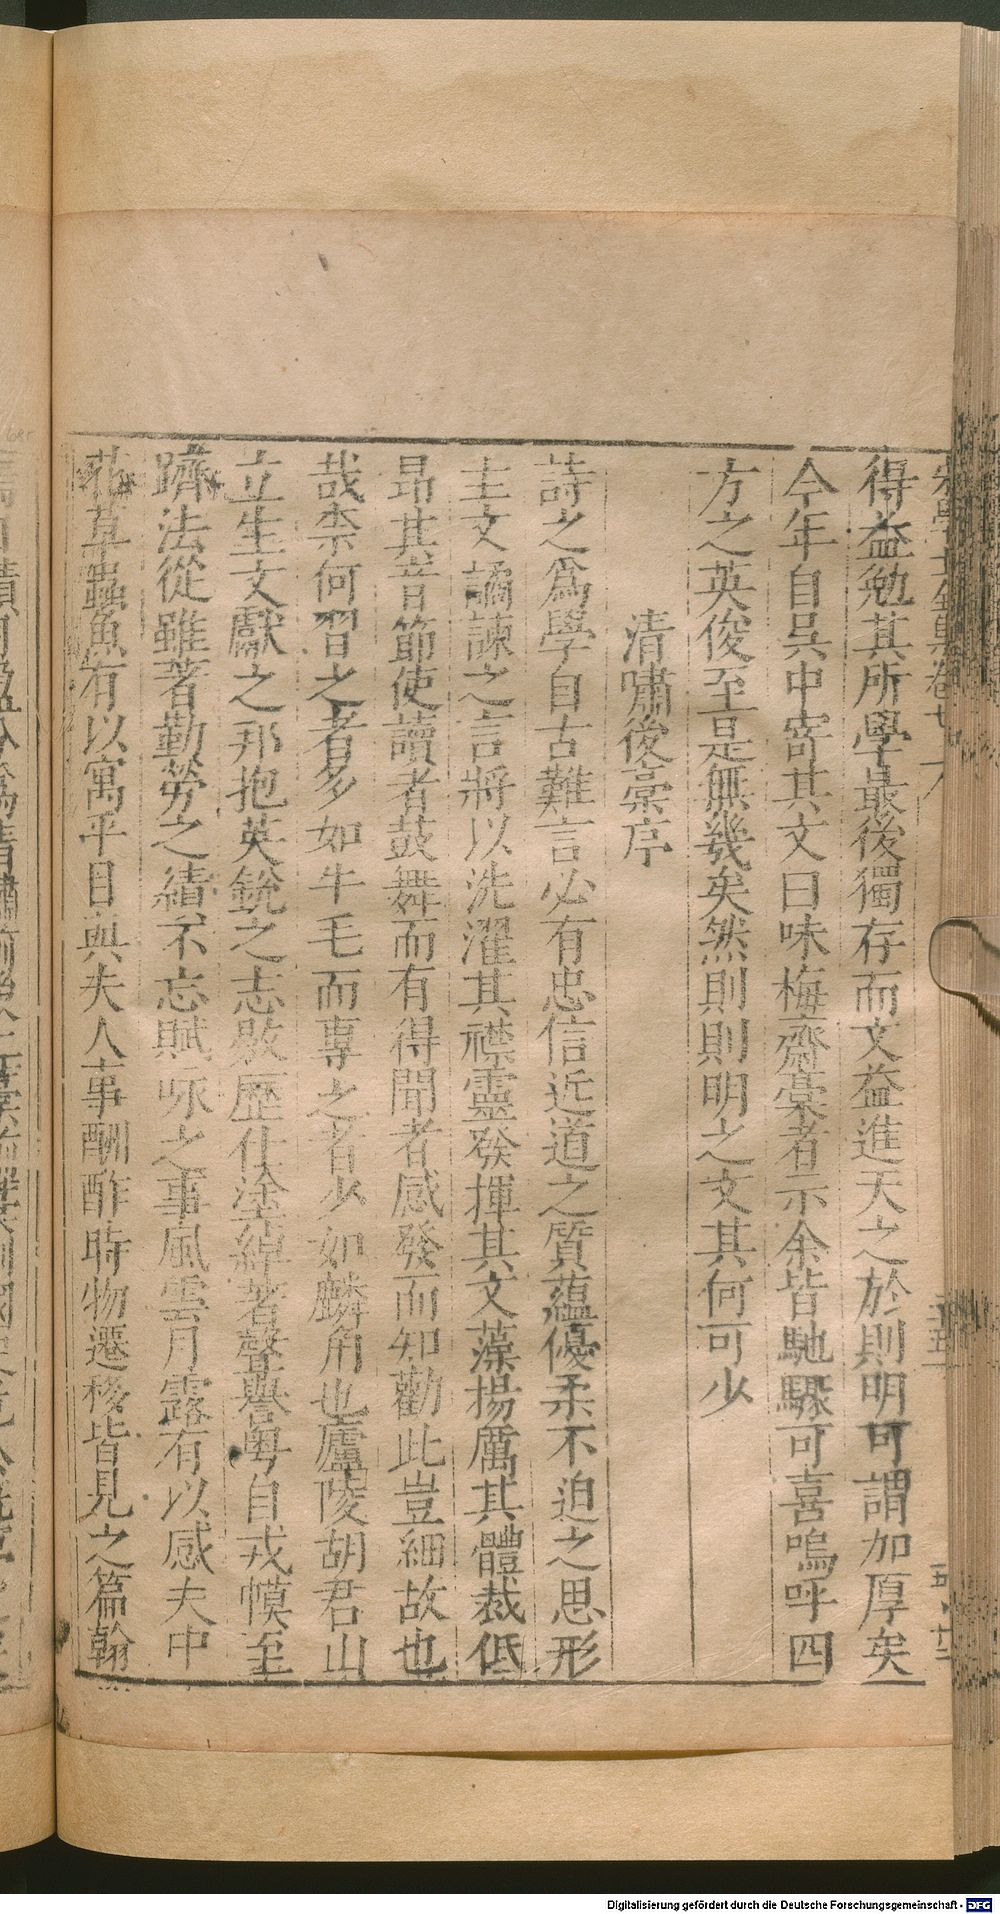 得益勉其所學最後獨存而文益進天之於則明可謂加厚矣
今年自吳中寄其文曰味梅齋稾者示余皆馳騁可喜嗚呼四
方之英俊至是無幾矣然則則明之文其何可少
清嘯後稾序
詩之爲學自古難言必有忠信近道之質蘊優柔不迫之思形
主文譎諫之言將以洗濯其襟靈發揮其文藻揚厲其體裁低
昂其音節使讀者鼓舞而有得聞者感發而知勸此豈細故也
哉柰何習之者多如牛毛而專之者少如麟角也廬陵胡君山
立生文獻之邦抱英銳之志敭歷仕塗綽著聲譽粤自戎幙至
躋法從雖著勤勞之績不忘賦咏之事風雲月露有以感夫中
花草蟲魚有以寓乎目與夫人事酬酢時物遷移皆見之篇翰
Digitalisierung gefördert durch die Deutsche Forschungsgemeinschaft - DFG